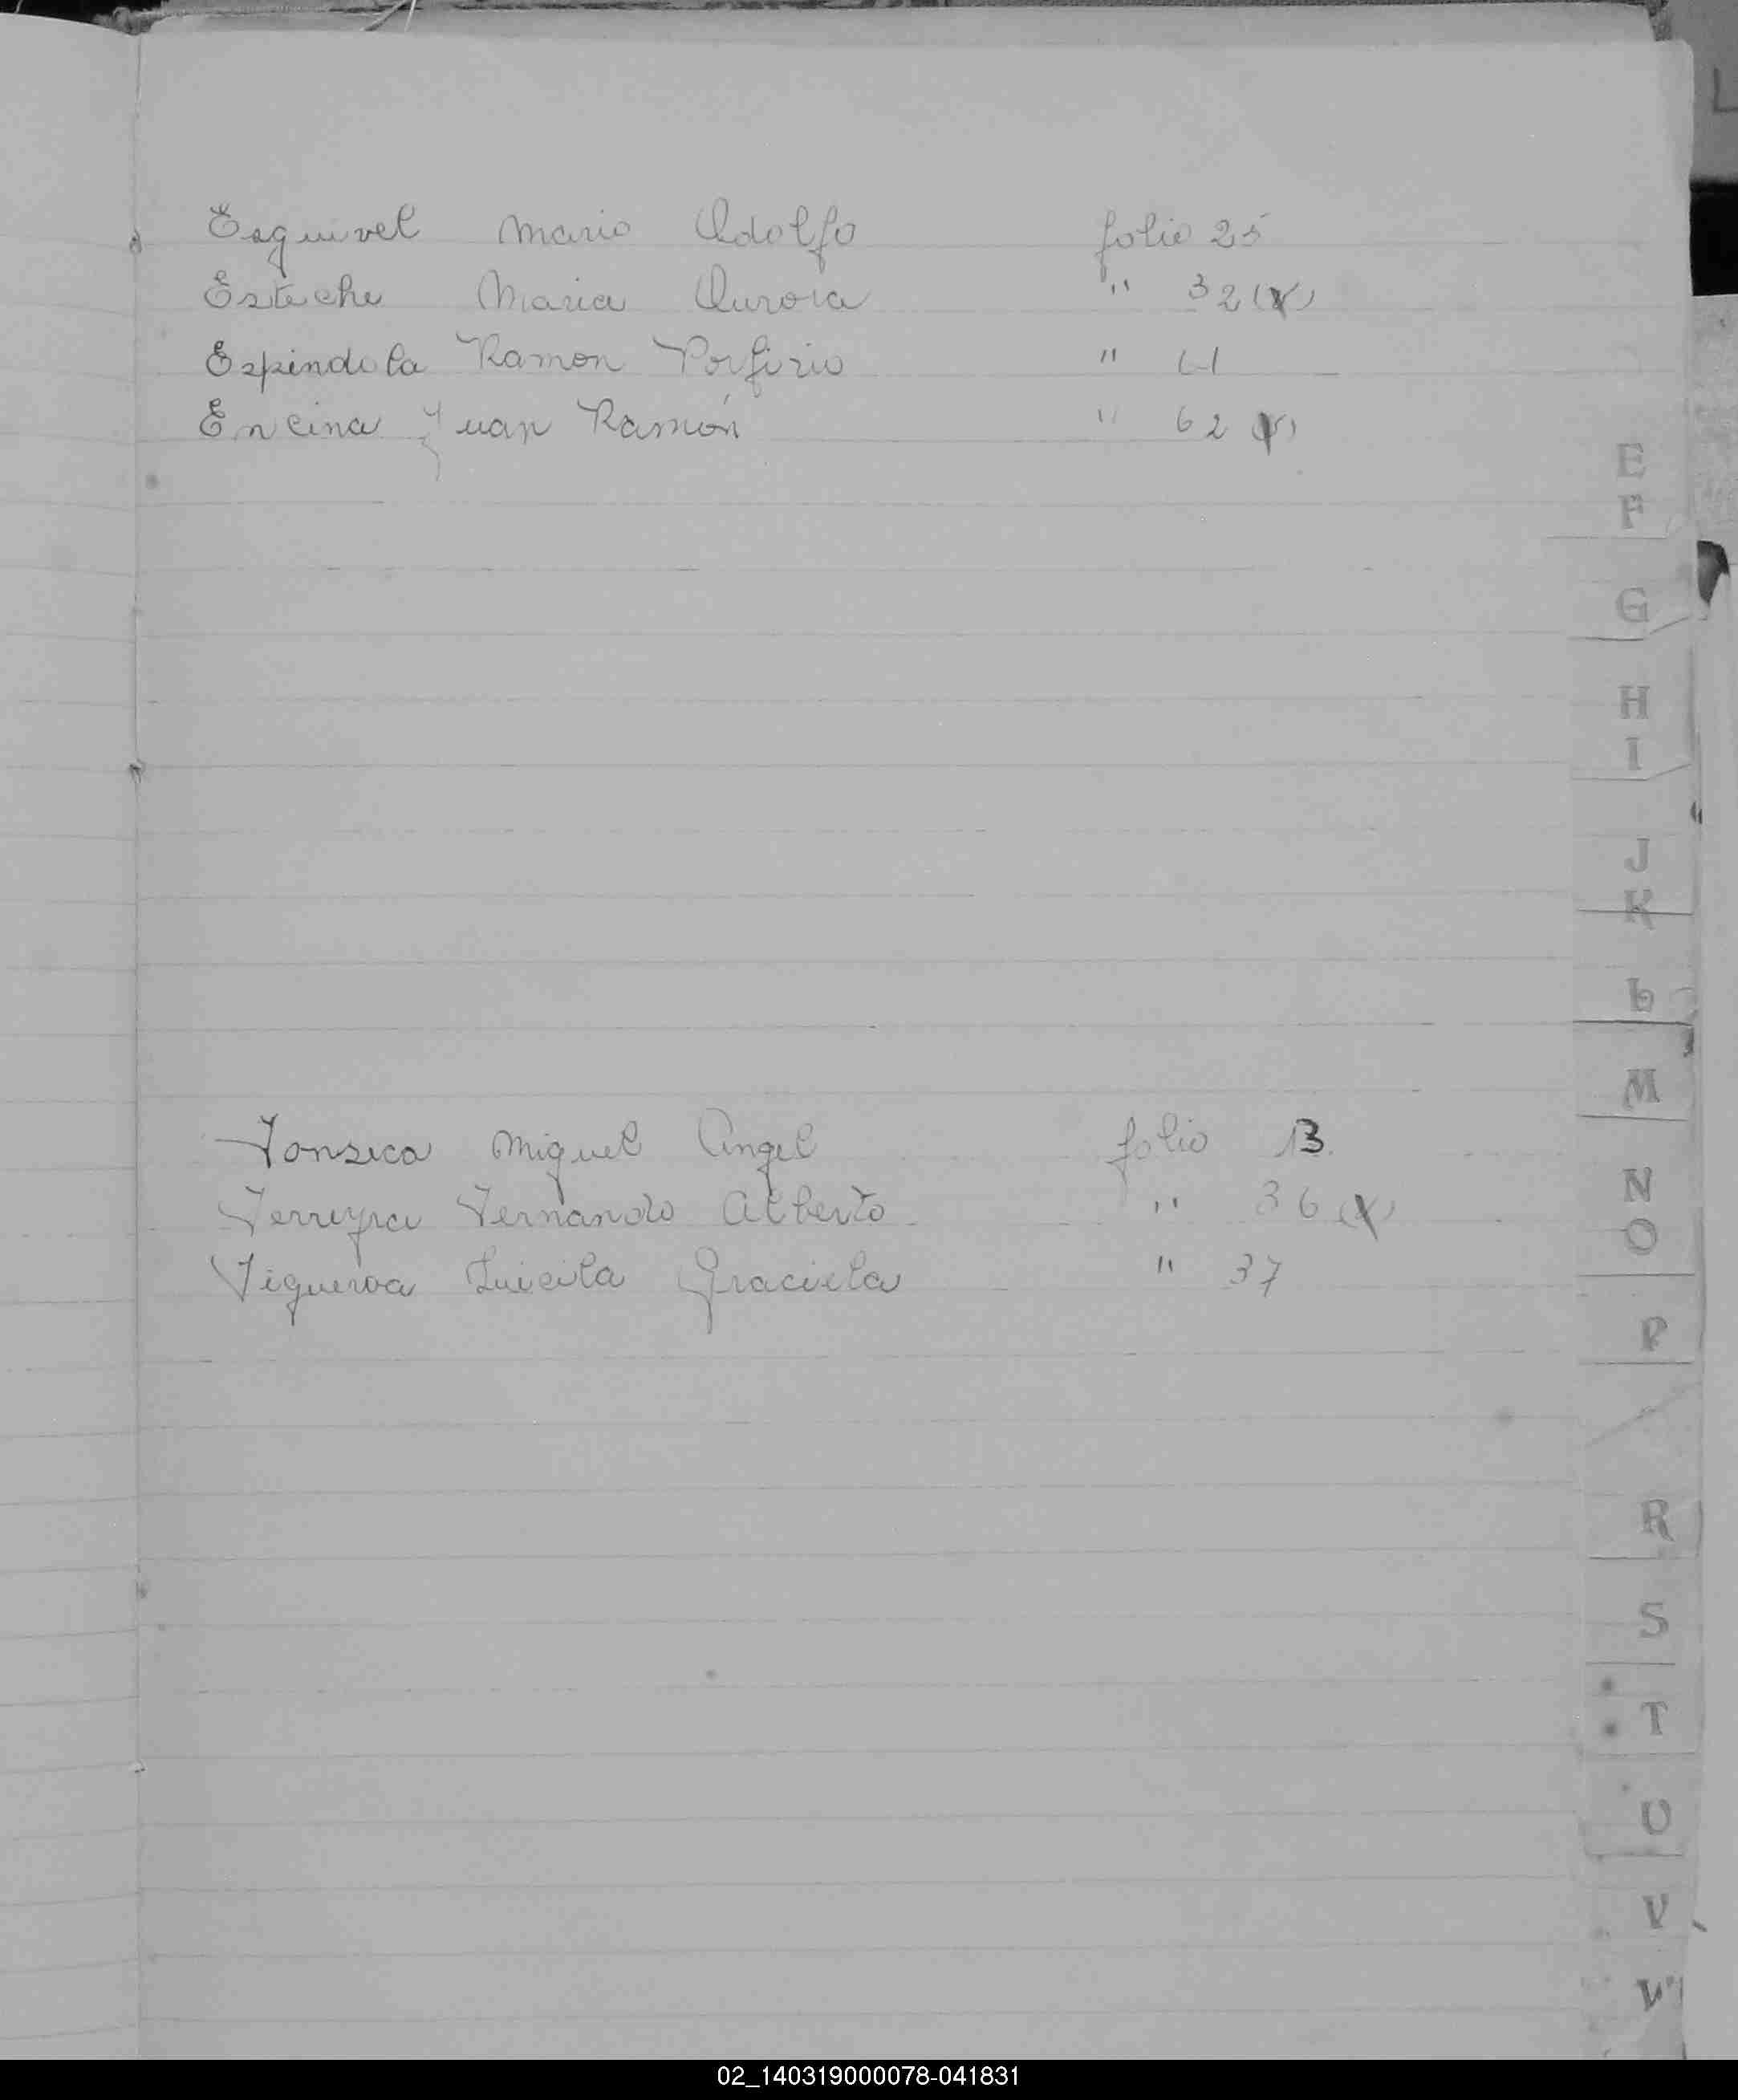 Esquivel Mario Adolfo folio 25
Esteche Maria Aurora " 32 (v)
Espindola Ramon Porfirio " 61
Encina Juan Ramón " 62 (v)
E
F
G
H
I
J
K
L
M
Fonseca Miguel Angel folio 13
Ferreyra Fernando Alberto " 36 (v)
Figueroa Lucila Graciela " 37
N
O
P
R
S
T
U
V
W
02_140319000078-041831